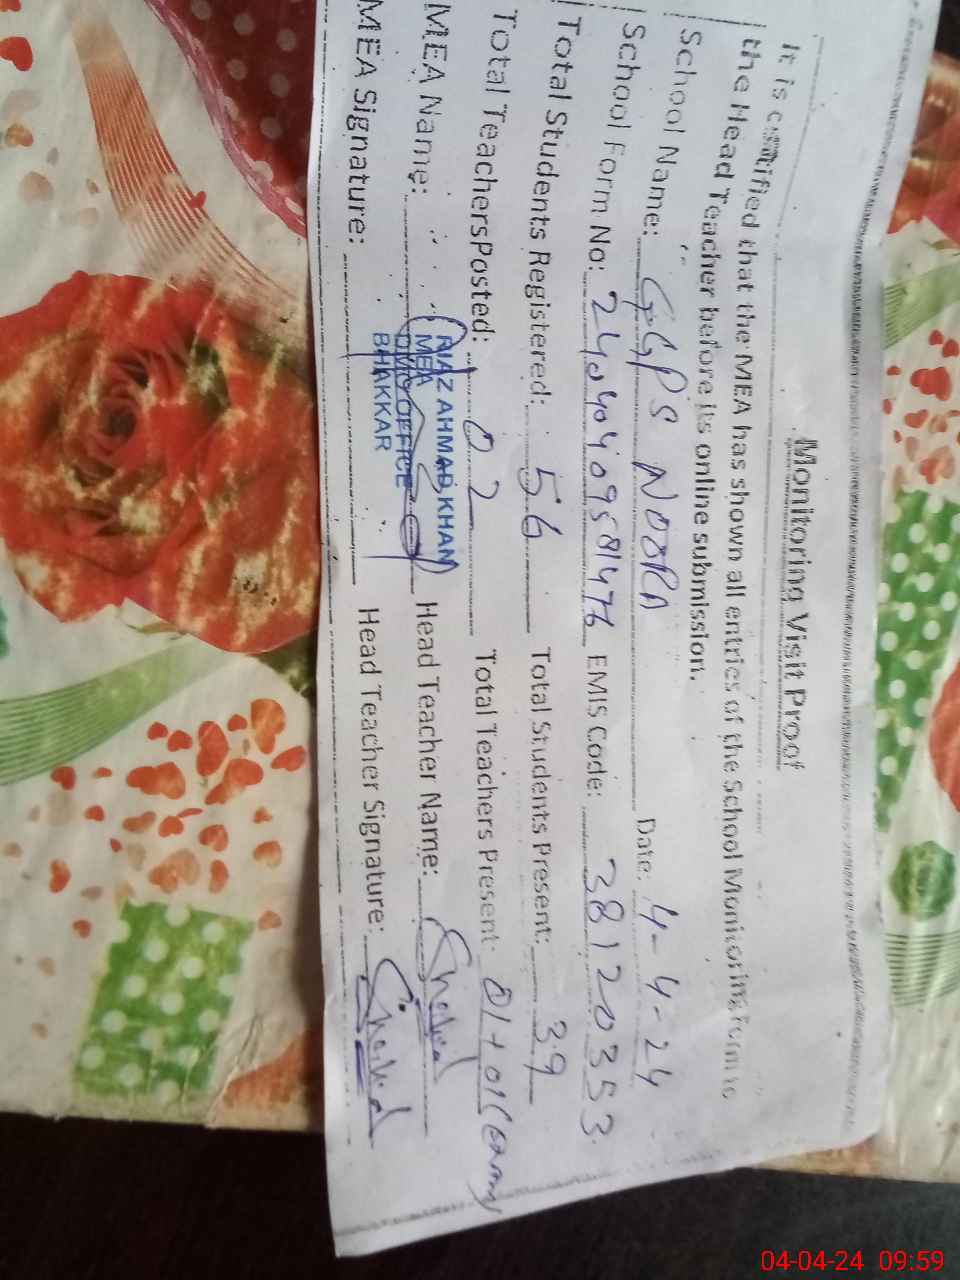 Monitoring Visit Proof
It is certified that the MEA has shown all entries of the School Monitoring Form to
the Head Teacher before its online submission.
School Name: GGPS NOORA Date: 4-4-24
School Form No: EMIS Code: 38120353
Total Students Registered: 56 Total Students Present: 39
Total TeachersPosted: 02 Total Teachers Present: 01+01(exam)
MEA Name: RIAZ AHMAD KHAN Head Teacher Name:
MEA
DMO OFFICE
BHAKKAR
MEA Signature: Head Teacher Signature:
04-04-24 09:59